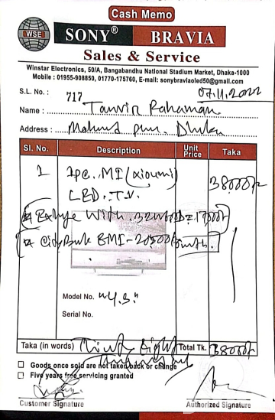 Cash Memo
WSE
SONY BRAVIA
Sales & Service
Winstar Electronics, 50/A, Bangabandhu National Stadium Market, Dhaka-1000
Mobile : 01955-908850, 01770-175760, E-mail: sonybravialed50@gmail.com
S.L. No. : 717 07.11.2022
Name : Tanvir Rahaman
Address : Dhaka
Sl. No. Description Unit Price Taka
1 1pc. MI (xioumi) 38000/
LED. T.V.
With
City Bank EMI
Model No.
Serial No.
Taka (in words) Total Tk. 38000/
Goods once sold are not taken back or change
Five years free servicing granted
Customer Signature Authorized Signature